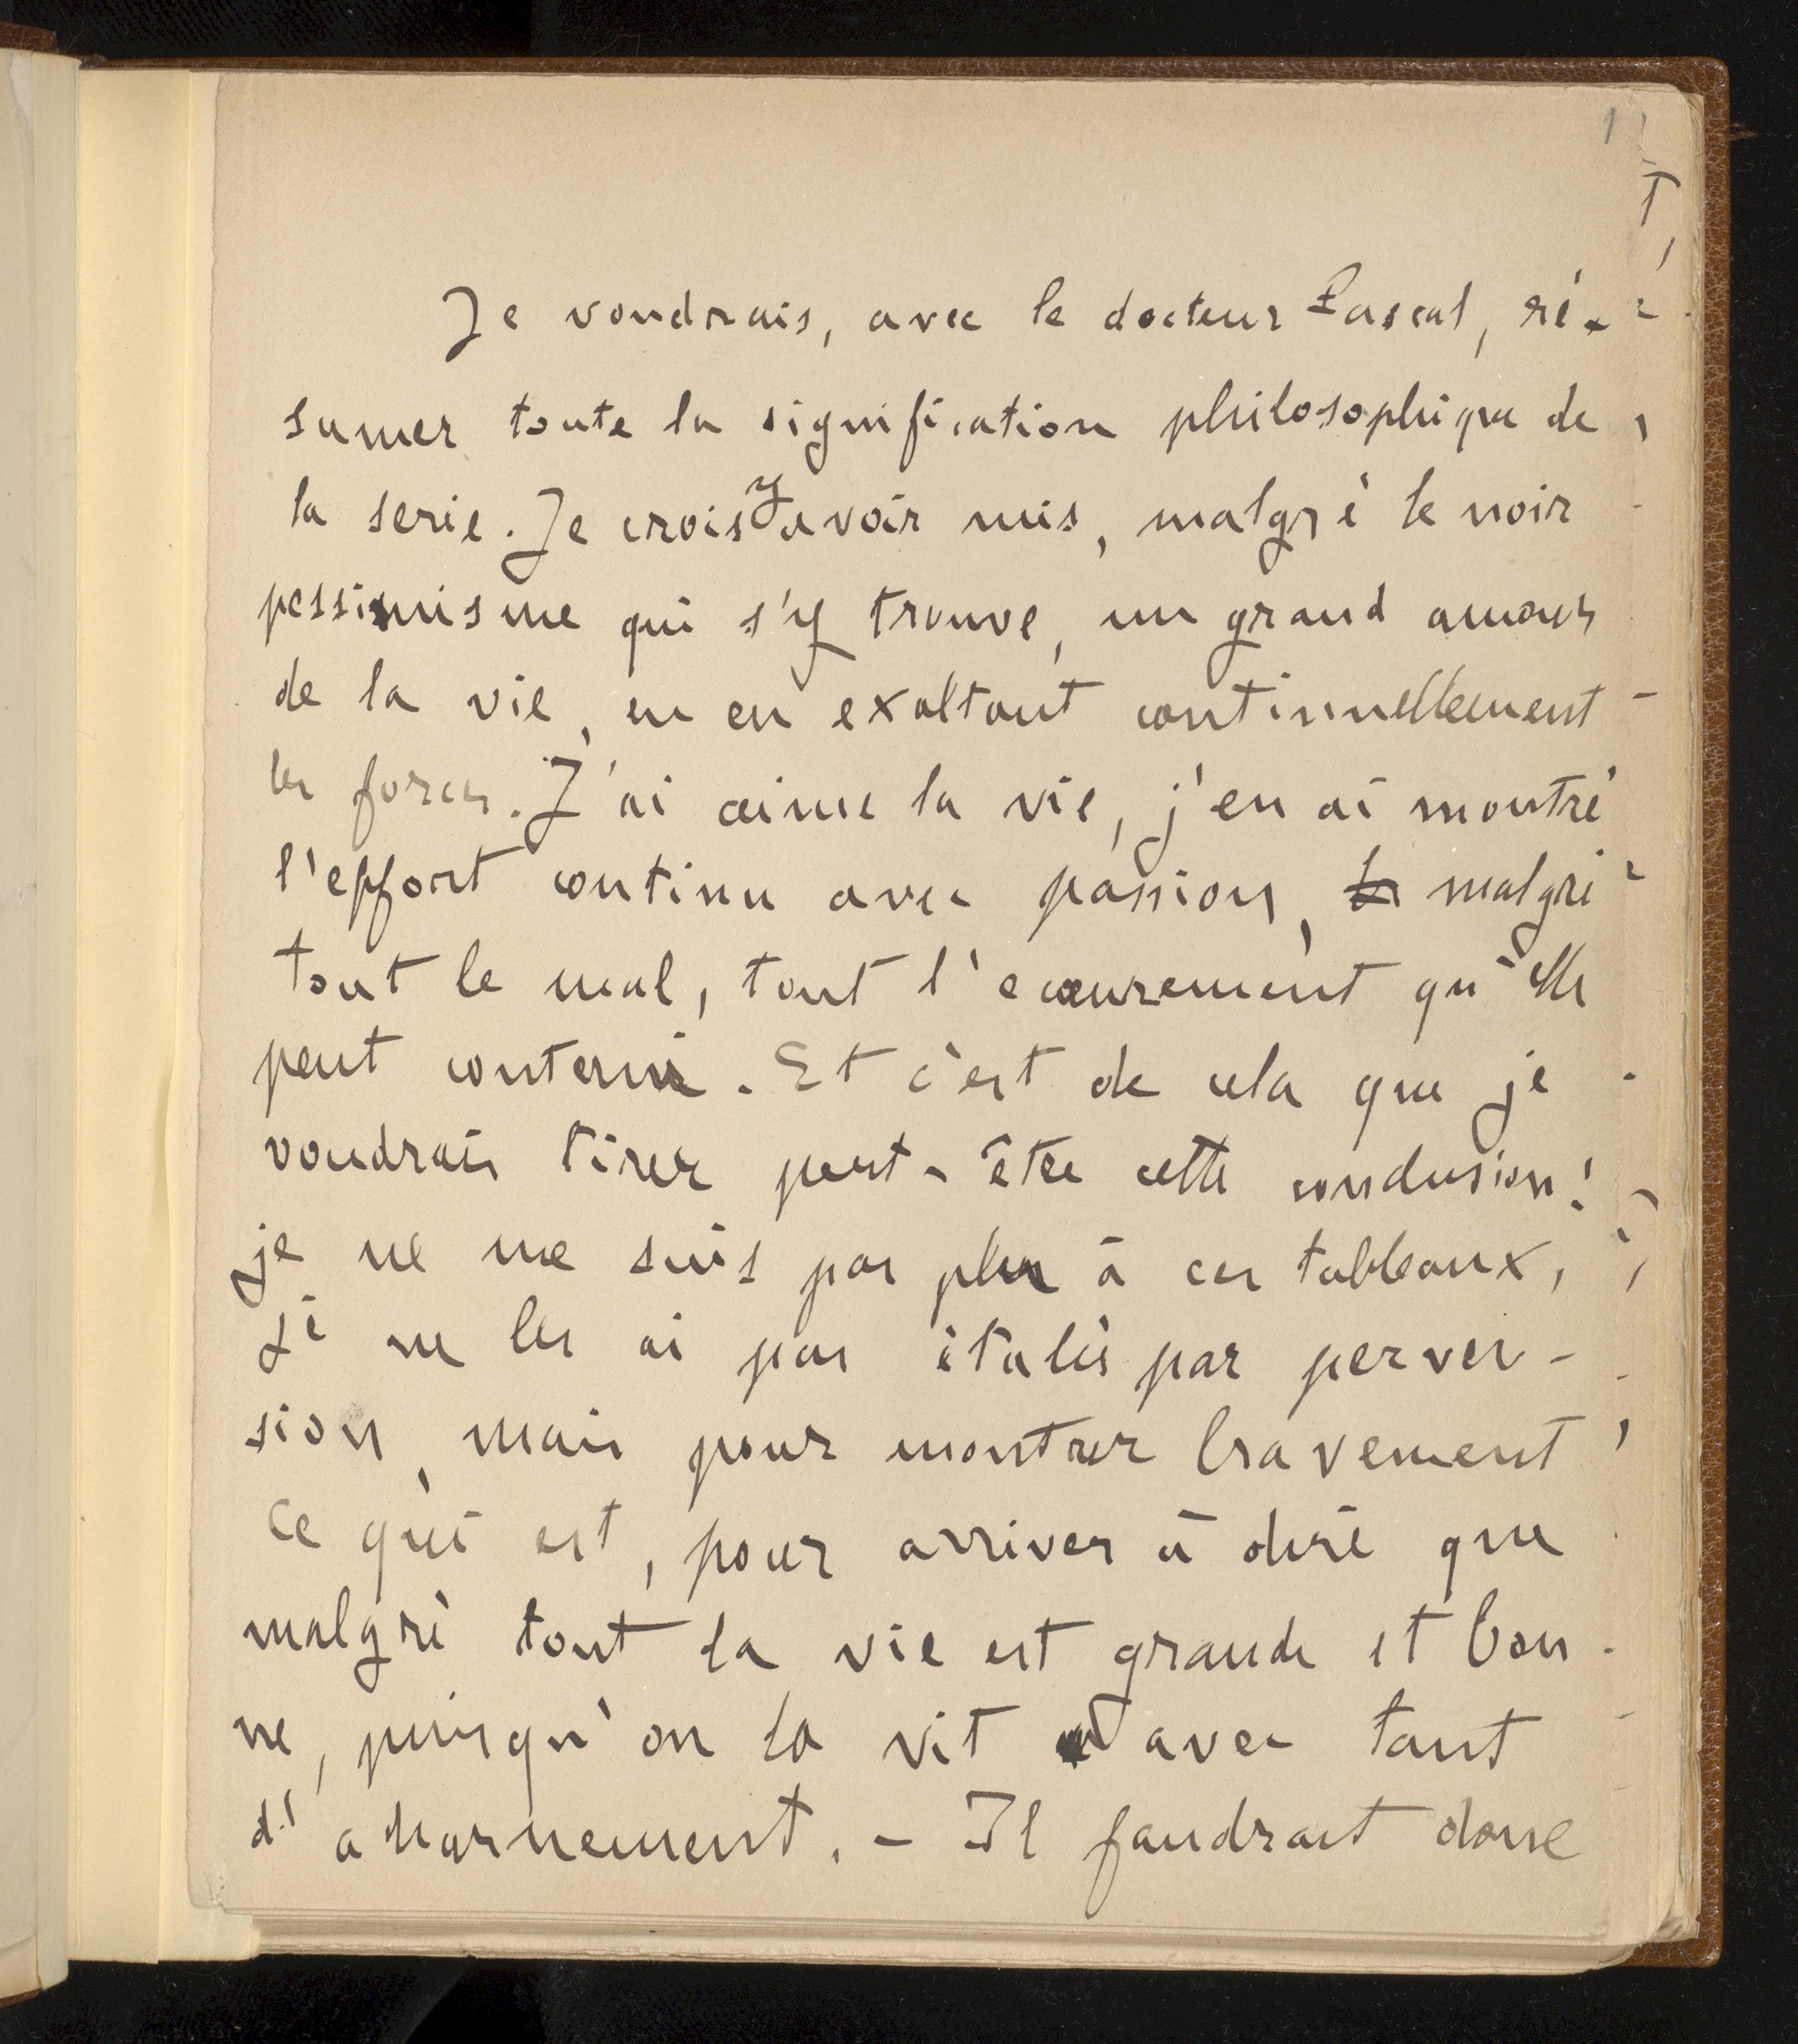 1
Je voudrais, avec le docteur Pascal, ré-
sumer toute la signification philosophique de
la serie. Je crois y avoir mis, malgré le noir
pessimisme qui s'y trouve, un grand amour
de la vie, en en exaltant continuellement
les forces. J'ai aimé la vie, j'en ai montré
l'effort continu avec passion, malgré
tout le mal, tout l'ecœurement qu'elle
peut contenir. Et c'est de cela que je
voudrais tirer peut-être cette conclusion :
je ne me suis pas plu à ces tableaux,
je ne les ai pas étalés par perver-
sion, mais pour montrer bravement
ce qui est, pour arriver à dire que
malgré tout la vie est grande et bon-
ne, puisqu'on la vit avec tant
d'acharnement. - Il faudrait donc